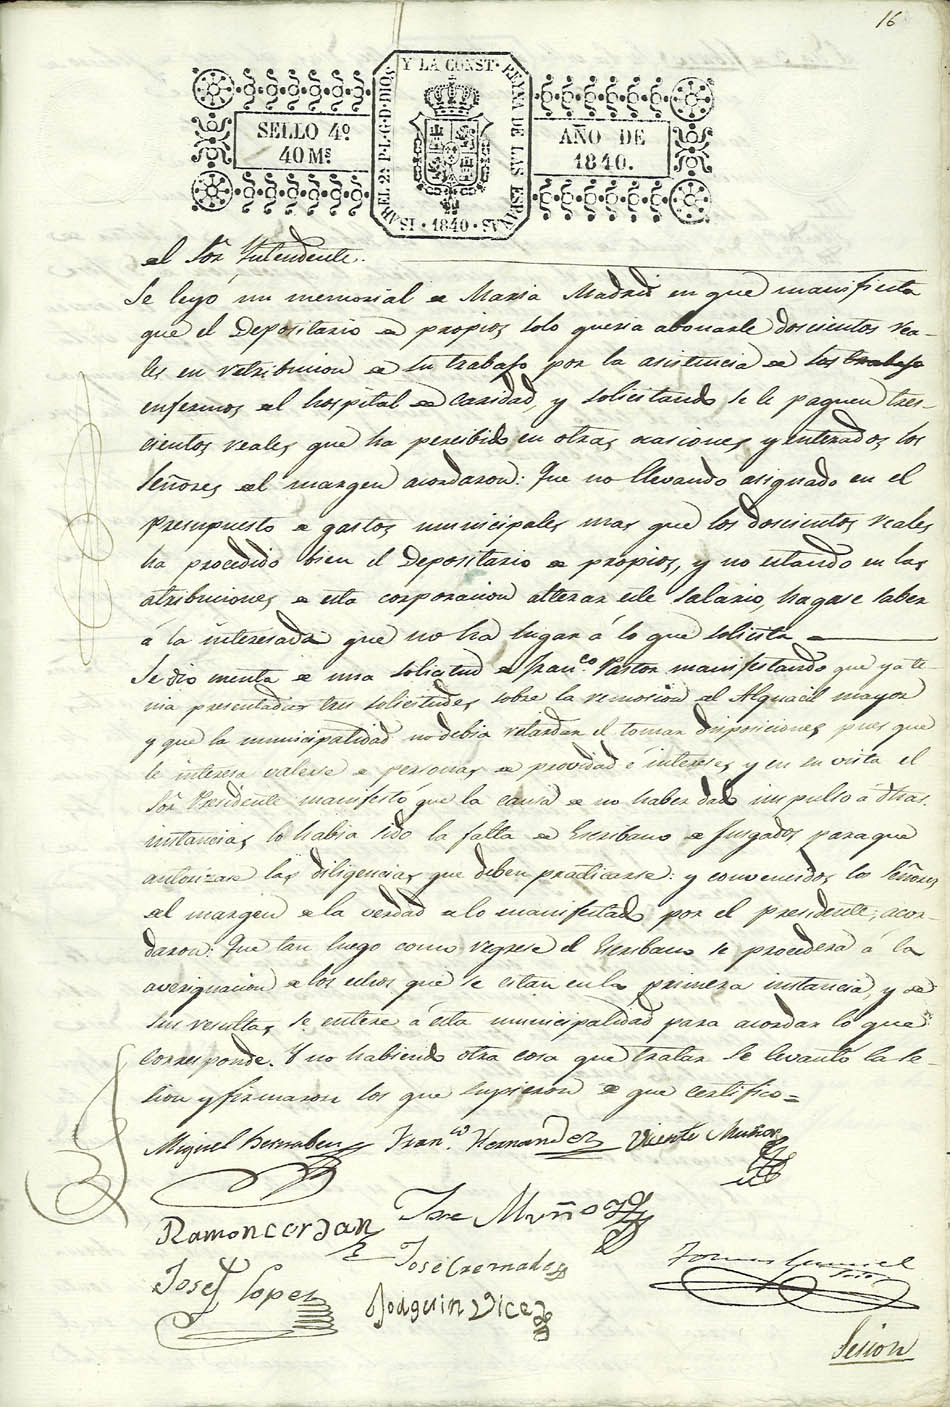 16
ISABEL 2ª P. L. G. D. DIOS Y LA CONST. REYNA DE LAS ESPAÑAS
SELLO 4º
40 Ms
AÑO DE
1840.
1840
el Sõr Yntendente.
Se leyó un memorial de Maria Madrid en que manifiesta
que el Depositario de propios solo queria abonarle doscientos rea-
les en retribucion de su trabajo por la asistencia de los trabajo
enfermos del hospital de caridad, y solicitando se le paguen tres-
cientos reales que ha percibido en otras ocasiones, y enterados los
Señores del margen acordaron: Que no llevando asignado en el
presupuesto de gastos municipales mas que los doscientos reales
ha procedido bien el Depositario de propios, y no estando en las
atribuciones de esta corporacion alterar este salario, hagase saber
á la interesada que no ha lugar á lo que solicita
Se dio cuenta de una solicitud de Franco Pastor manifestando que ya te-
nia presentadas tres solicitudes sobre la remosion al Alguacil mayor
y que la municipalidad no debia retardar el tomar disposiciones pues que
le interesa valerse de personas de providad é intereses, y en su vista el
Sõr Presidente manifestó que la causa de no haber dado impulso á otras
instancias, lo habia sido la falta de Escribano de Juzgados, para que
autorizase las diligencias que deben practicarse: y convenidos los Señores
del margen de la verdad de lo manifestado por el presidente, acor-
daron: Que tan luego como regrese el Escribano se procedera á la
averiguacion de los echos que se citan en la primera instancia, y de
sus resultas se entere á esta municipalidad para acordar lo que
corresponde. Y no habiendo otra cosa que tratar se levantó la se-
sion y firmaron los que supieron de que certifico =
Miguel Bernabeu Franco Hernandez Vicente Muñoz
Ramon cerdan Jose Muñoz
José Cremades
José Lopez
Joaquin Vice
Sesion